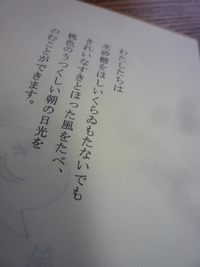 わたしたちは
氷砂糖をほしいくらゐもたないでも
きれいなすきとほった風をたべ、
桃色のうつくしい朝の日光を
のむことができます。